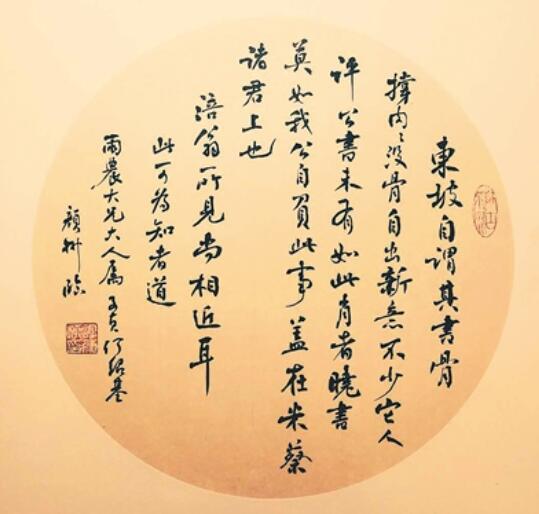 東坡自謂其書骨
撐肉々没骨自出新意不少它人
評公書未有如此肖者曉書
莫如我公自負此事蓋在米蔡
諸君上也
涪翁所見尚相近耳
此可為知者道
雨農大兄大人属 子貞何紹基
顏州臨